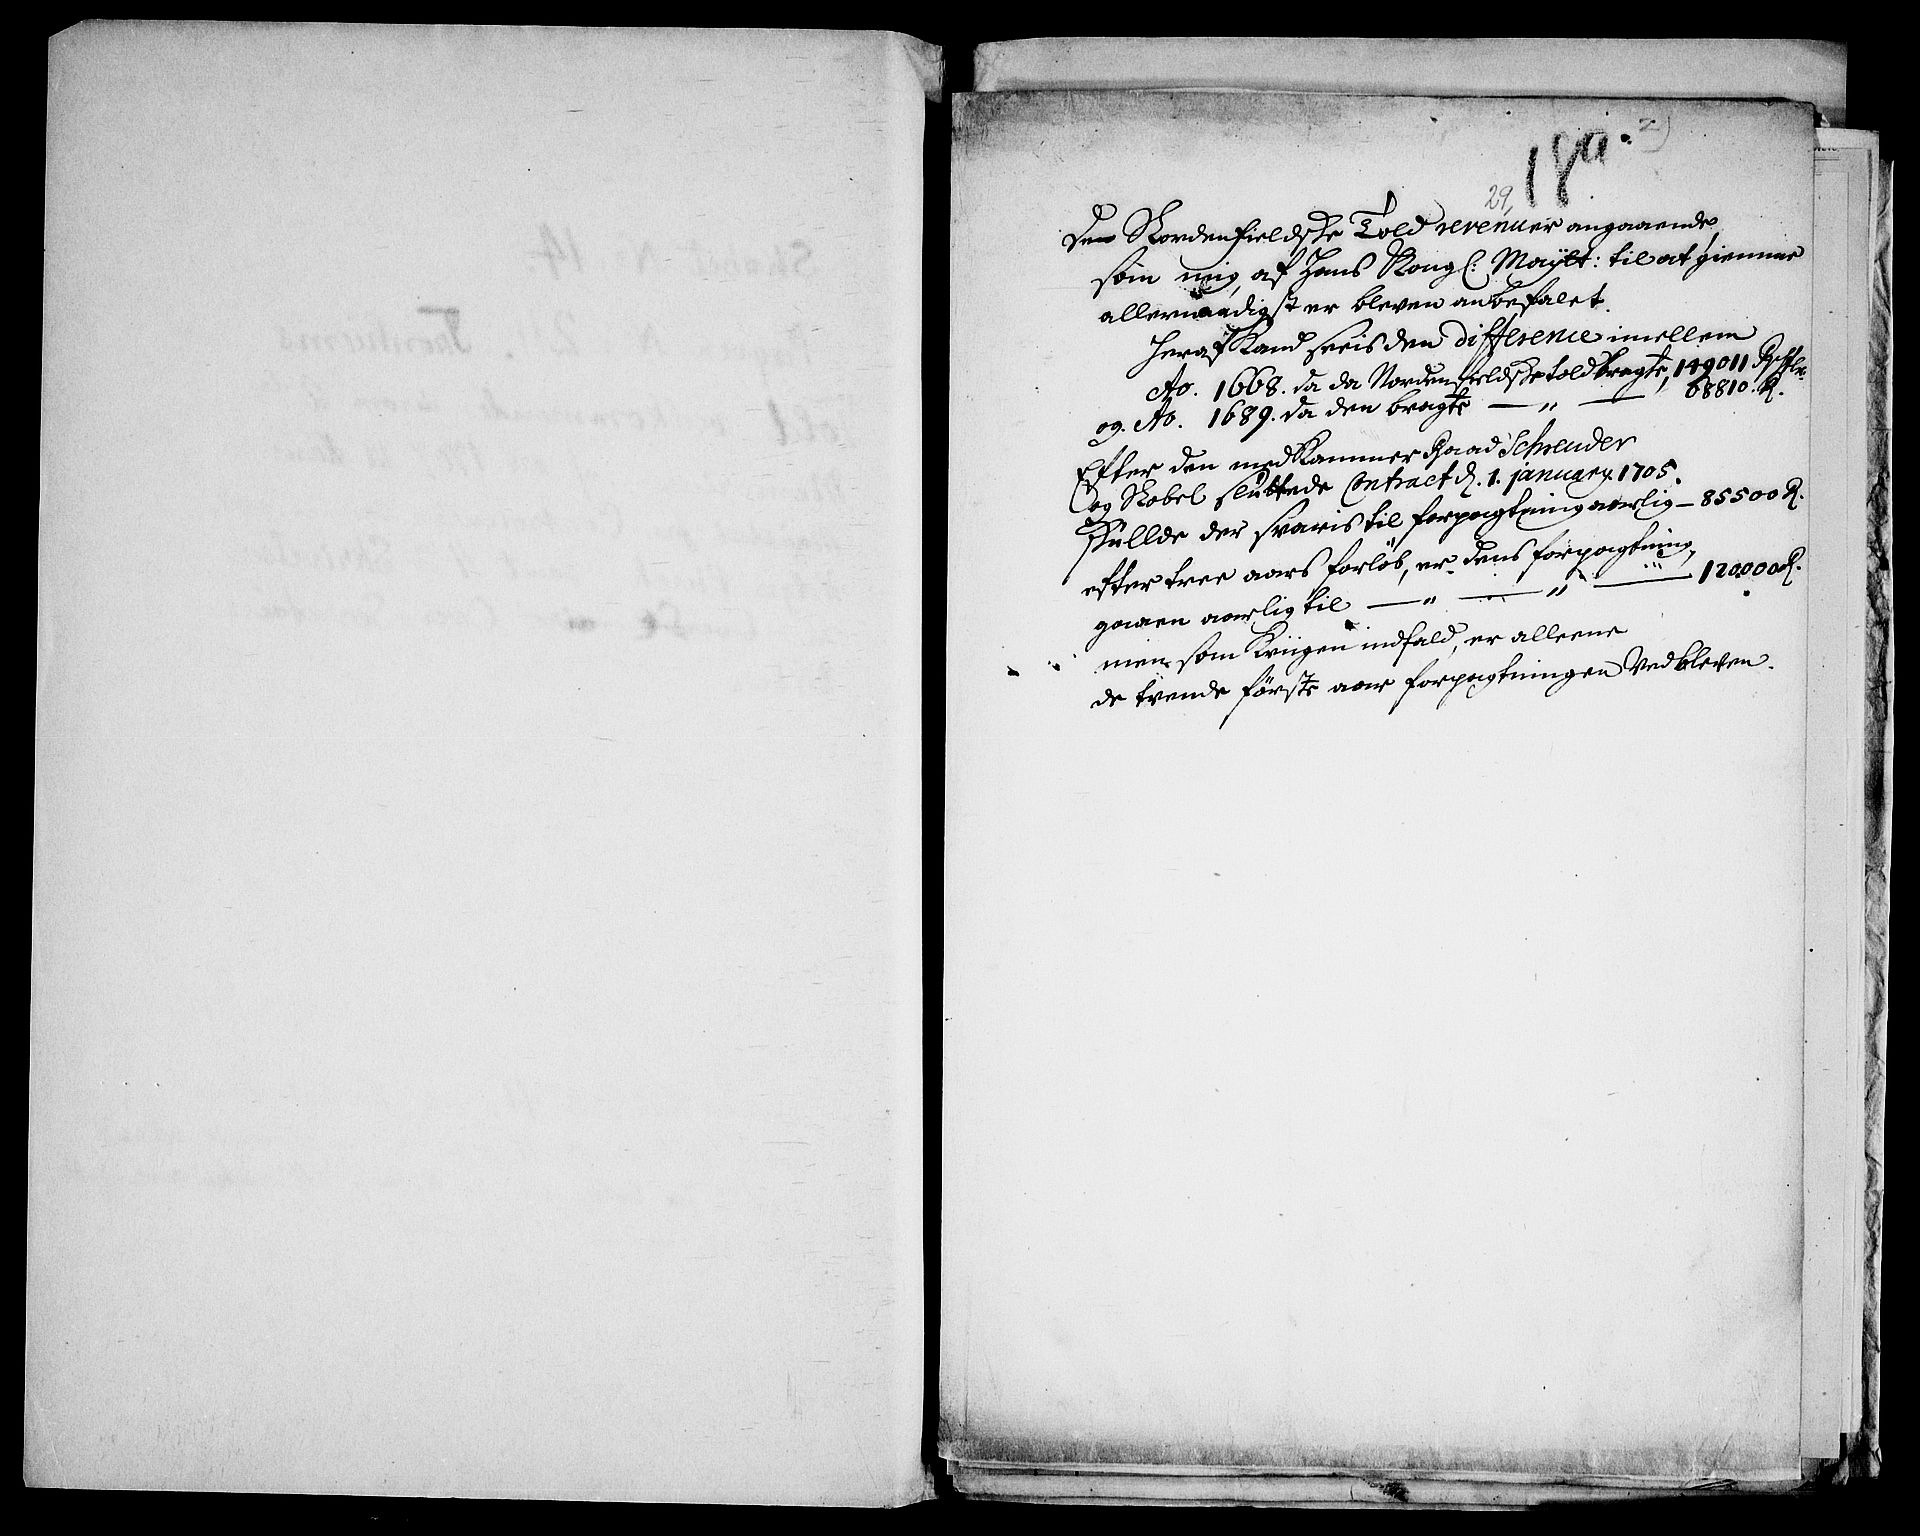 18a. 2)
29,
Den Nordenfieldske Told revenuer angaaende,
som mig, af Hans Kongl: Maÿtt: til at giemme
allernaadigst er bleven anbefalet.
Heraf kand seeis den difference imellem
Ao. 1668. da da Nordenfieldske told bragte, 149011 Rdlr.
og. Ao. 1689. da den bragte — „ — 68810. R.
Efter den med Kammer Raad Schreuder
og Nobel sluttede Contract d. 1. january. 1705.
skullde der svaris til forpagtning aarlig — 85500 R.
efter tree aars forløb, er dens forpagtning,
gaaen aarlig til — „ — „ — 120000 R.
men som Kriigen indfald, er alleene
de trende første aar forpagtningen Vedbleven.